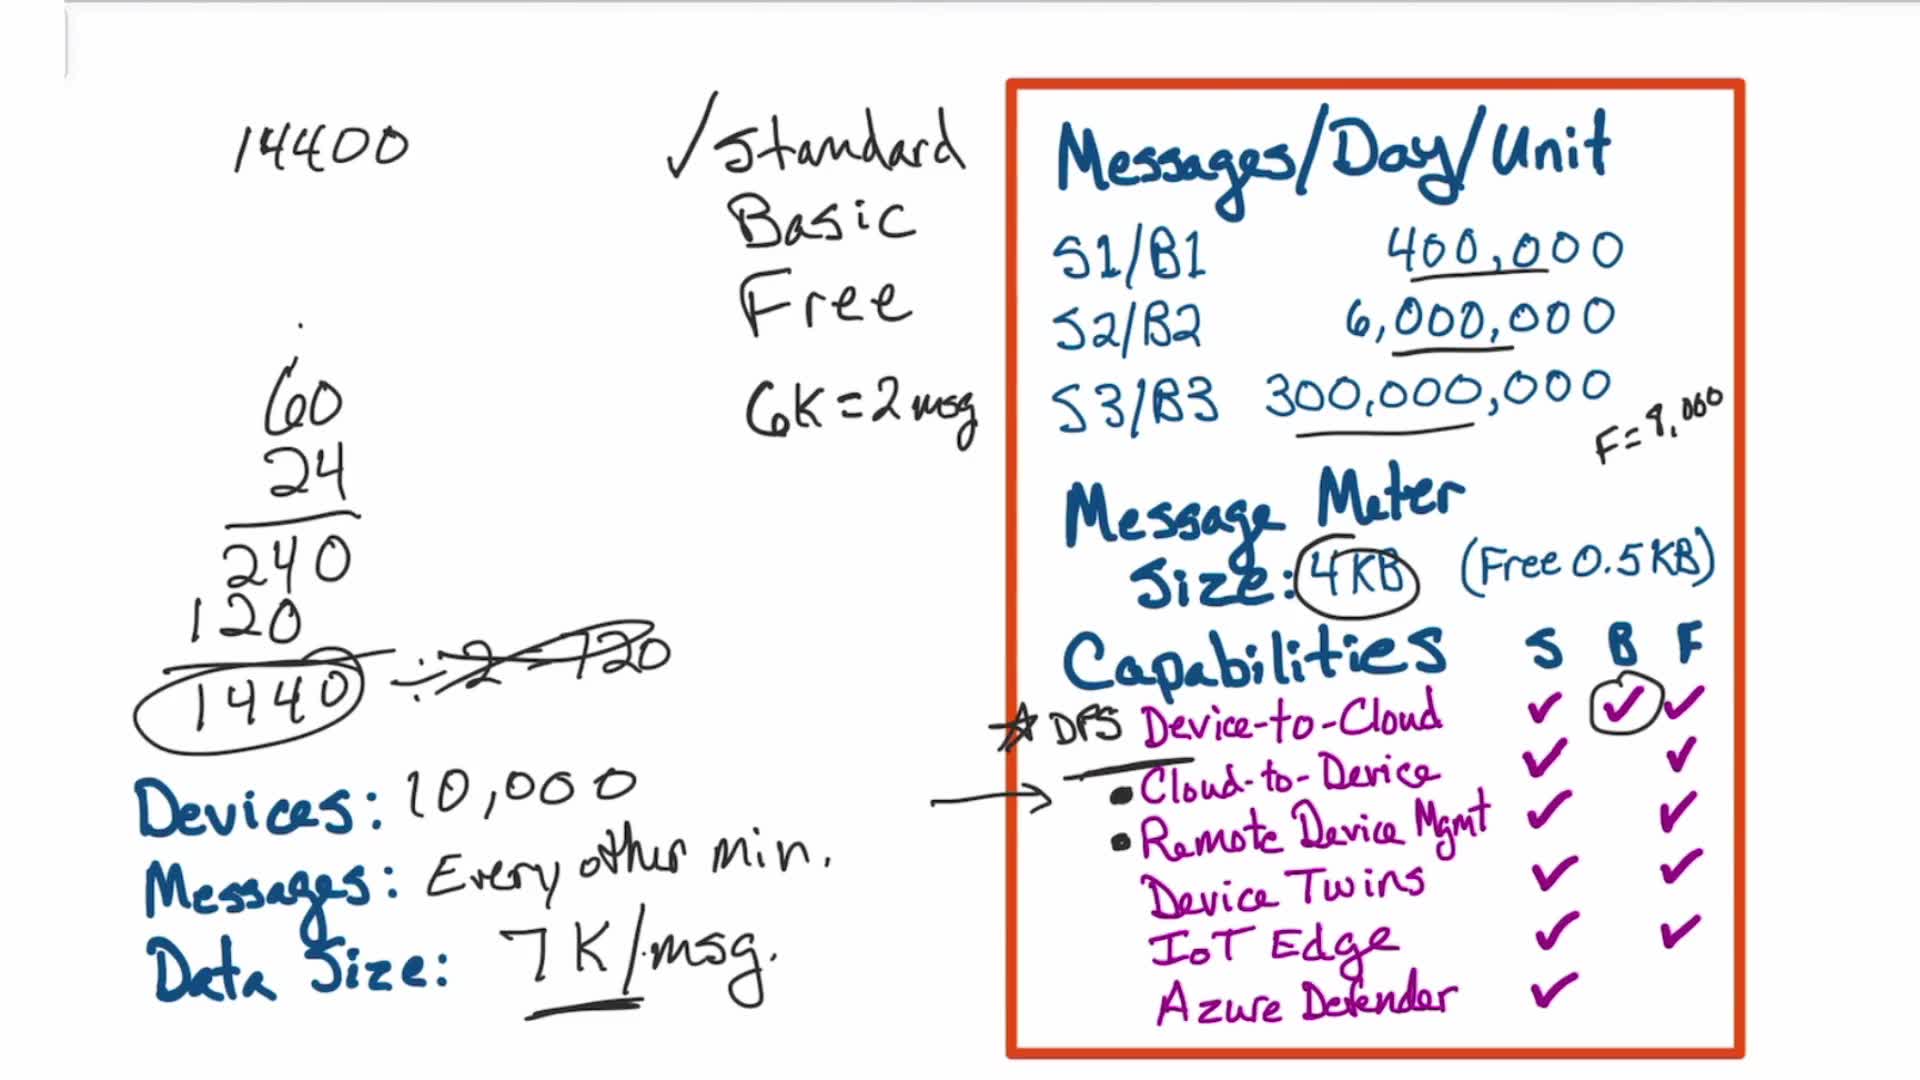 14400
60
24
240
120
1440 ÷ 2 = 720
Devices: 10,000
Messages: Every other min.
Data Size: 7K/msg.
✓Standard
Basic
Free
6K = 2 msg
Messages/Day/Unit
S1/B1 400,000
S2/B2 6,000,000
S3/B3 300,000,000
F = 8,000
Message Meter
Size: 4KB (Free 0.5KB)
Capabilities S B F
★ DPS Device-to-Cloud ✓ ✓ ✓
• Cloud-to-Device ✓ ✓
• Remote Device Mgmt ✓ ✓
Device Twins ✓ ✓
IoT Edge ✓ ✓
Azure Defender ✓